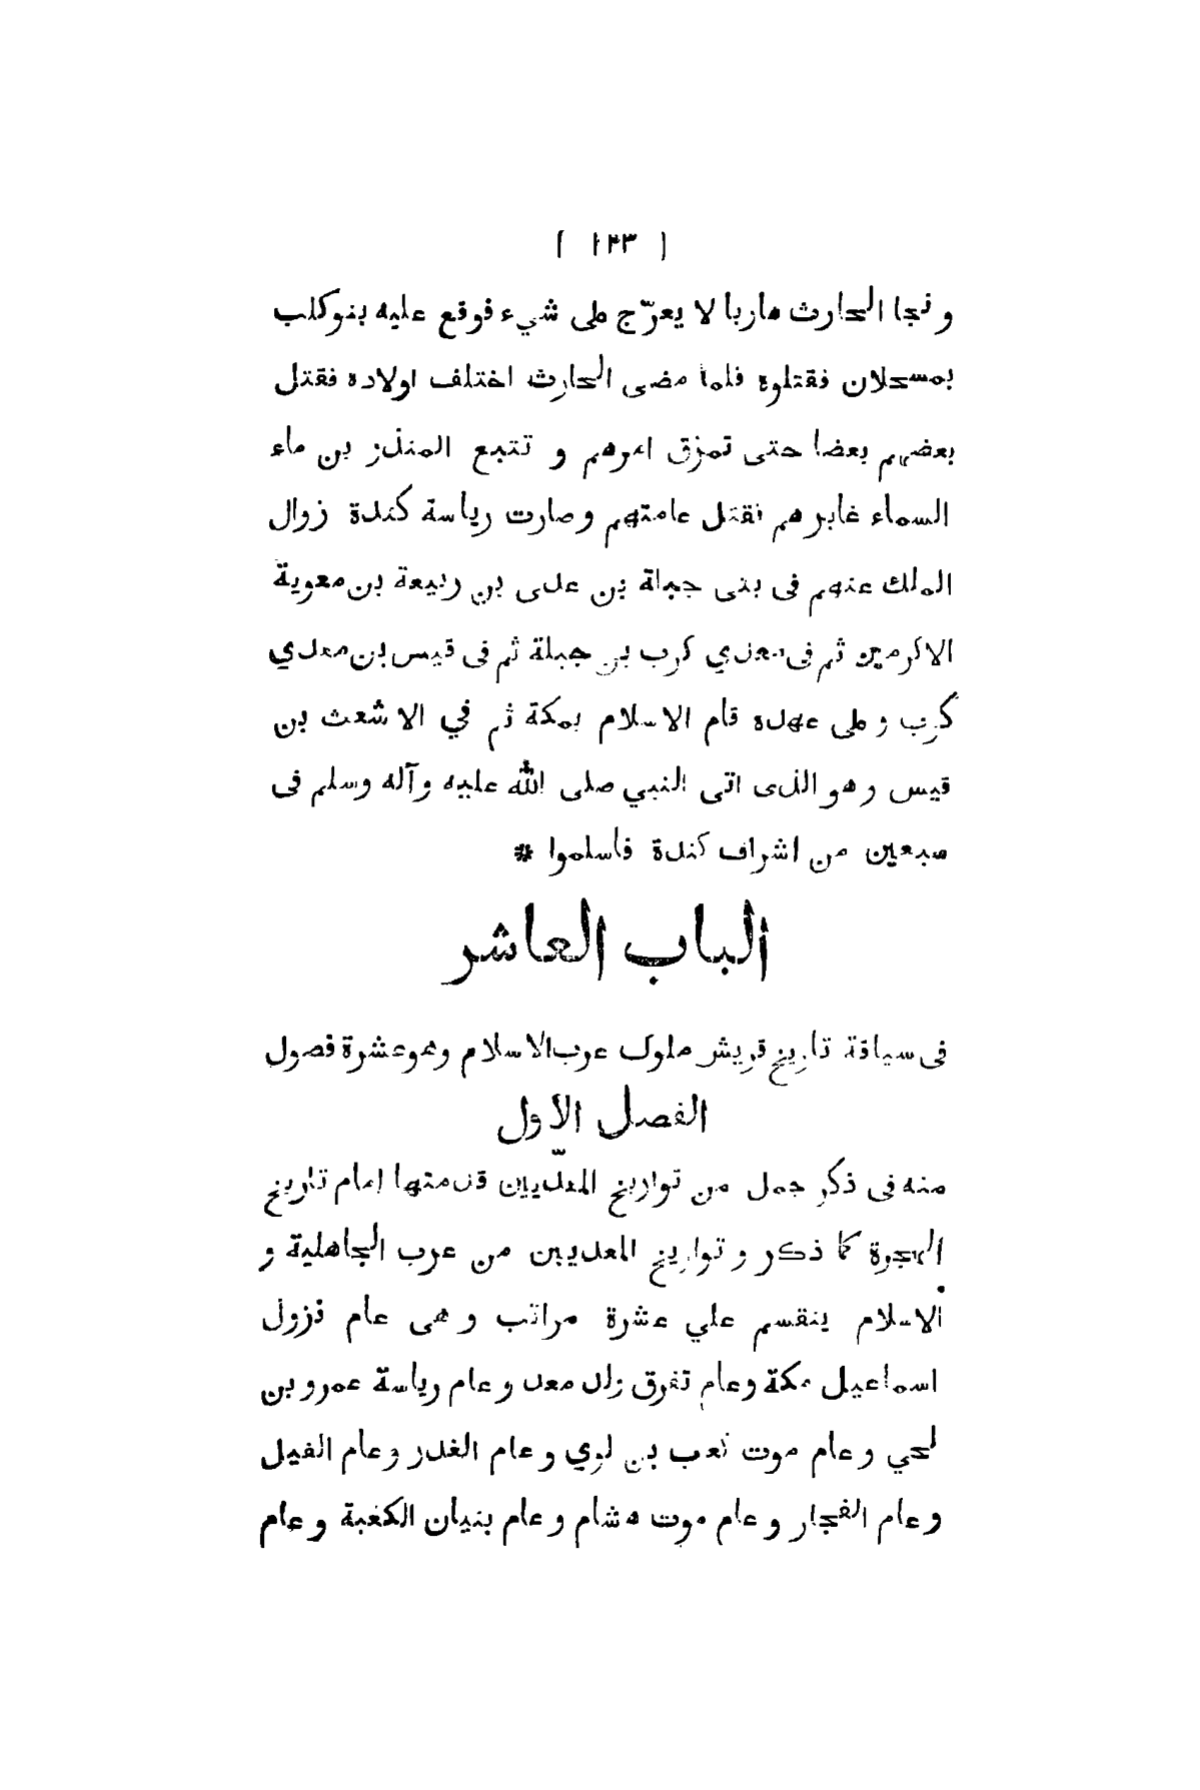 ( ١٢٣ )
و نجا الحارث هاربا لا يعرّج على شيء فوقع عليه بنو كلب
بمسحلان فقتلوه فلما مضى الحارث اختلف اولاده فقتل
بعضهم بعضا حتى تمزق امرهم و تتبع المنذر بن ماء
السماء غابرهم فقتل عامتهم وصارت رياسة كندة زوال
الملك عنهم فى بنى جبلة بن عدى بن ربيعة بن معوية
الاكرمين ثم فى معدي كرب بن جبلة ثم فى قيس بن معدي
كرب و على عهده قام الاسلام بمكة ثم في الاشعث بن
قيس وهو الذى اتى النبي صلى الله عليه وآله وسلم فى
سبعين من اشراف كندة فأسلموا #
الباب العاشر
فى سياقة تاريخ قريش ملوك عرب الاسلام وهو عشرة فصول
الفصل الاول
منه فى ذكر جمل من تواريخ المعدّيين قدمتها امام تاريخ
الهجرة كما ذكر و تواريخ المعديين من عرب الجاهلية و
الاسلام ينقسم علي عشرة مراتب و هى عام نزول
اسماعيل مكة وعام تفرق ولد معد وعام رياسة عمرو بن
لحي وعام موت كعب بن لوي وعام الغدر وعام الفيل
وعام الفجار وعام موت هشام وعام بنيان الكعبة وعام